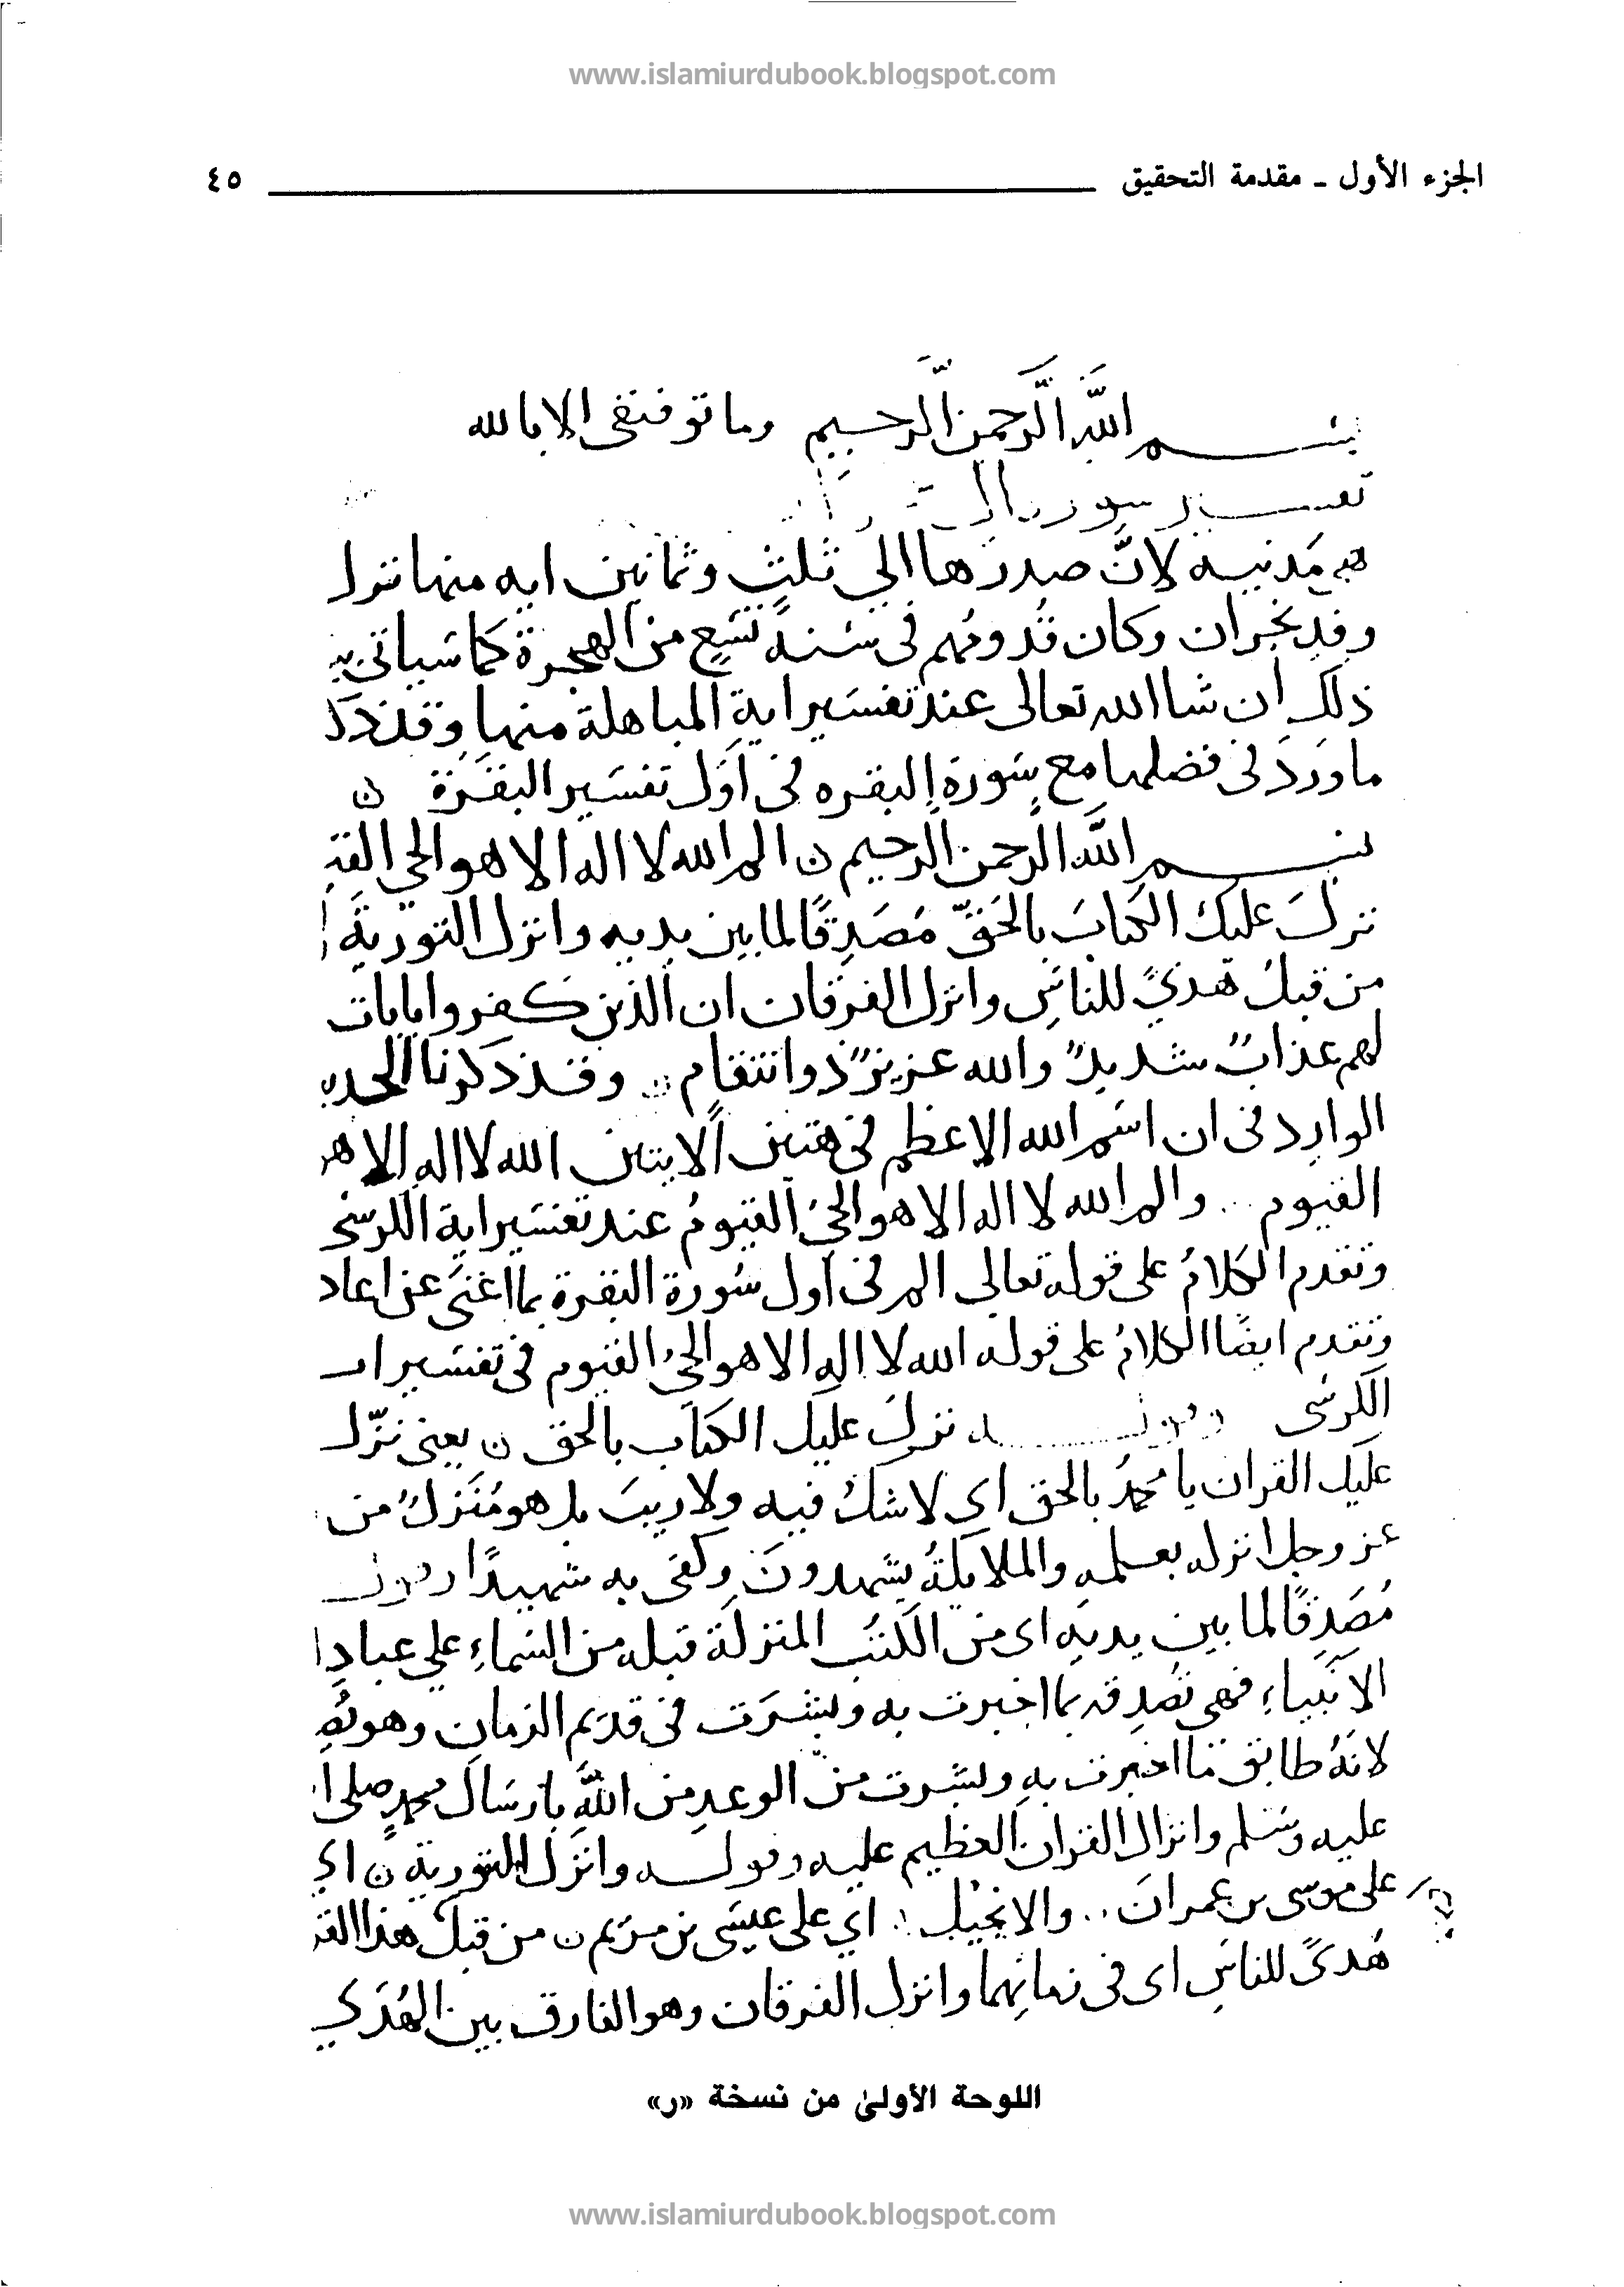 www.islamiurdubook.blogspot.com
الجزء الأول ـ مقدمة التحقيق ٤٥
بسم الله الرحمن الرحيم وما توفيقى الا بالله
تفسير سورة
هى مدنيه لان صدرها الى ثلث وثمانين ايه منها نزل
وفد نجران وكان قدومهم فى سنة تسع من الهجرة كما سياتى
ذلك ان شا الله تعالى عند تفسير اية المباهلة منها وقد ذكر
ما ورد فى فضلها مع سورة البقره فى اول تفسير البقرة ن
بسم الله الرحمن الرحيم ن الم الله لا اله الا هو الحي
نزل عليك الكتاب بالحق مصدقا لما بين يديه وانزل التورية
من قبل هدى للناس وانزل الفرقان ان الذين كفروا بايات
لهم عذاب شديد والله عزيز ذو انتقام ن وقد ذكرنا
الوارد فى ان اسم الله الاعظم فى هتين الايتين الله لا اله الا هو
القيوم .. والم الله لا اله الا هو الحي القيوم عند تفسير اية الكرسى
وتقدم الكلام على قوله تعالى الم فى اول سورة البقرة بما اغنى عن اعاد
وتقدم ايضا الكلام على قوله الله لا اله الا هو الحي القيوم فى تفسير
الكرسى وقوله نزل عليك الكتاب بالحق ن يعنى نزل
عليك القران يا محمد بالحق اى لا شك فيه ولا ريب بل هو منزل من
عز وجل انزله بعلمه والملايكة يشهدون وكفى به شهيدا وقوله
مصدقا لما بين يديه اى من الكتب المنزلة قبله من السماء على عباد
الانبياء فهى تصدقه بما اخبرت به وبشرت فى قديم الزمان وهو
لانه طابق ما اخبرت به وبشرت من الوعد من الله بارسال محمد صلى
عليه وسلم وانزال القران العظيم عليه وقوله وانزل التورية ن اي
على موسى بن عمران .. والانجيل اي على عيسى بن مريم ن من قبل هذا
هدى للناس اى فى زمانهما وانزل الفرقان وهو الفارق بين الهدي
اللوحة الأولىٰ من نسخة «ر»
www.islamiurdubook.blogspot.com